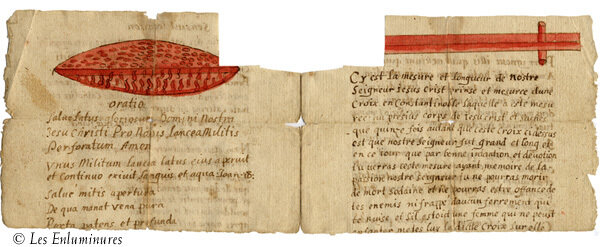 oratio
Salue Latus gloriosum Domini Nostri
Jesu Christi Pro Nobis Lancea Militis
Perforatum Amen
Vnus Militum Lancea latus eius aperuit
et continuo exiuit Sanguis et aqua Joan
Salue mitis apertura
De qua manat vena pura
Porta patens et profunda
Cy est La mesure et Longueur de nostre
Seigneur Jesus Crist prinse et mesuree dune
Croix en Constantinoble Laquelle a este mesu
ree au precius corps de Jesucrist et sachez
que quinze fois autant que ceste Croix cidessus
est que nostre Seigneur fut grand et Long et
en ce Jour que par bonne intention et deuotion
tu verras ceste mesure ayant memoire de La
passion nostre Seigneur tu ne pourras mourir
de mort sodaine et ne pourras estre offance de
tes enemis ni frappe daucun ferrement qui
te nuise et sil estoid une femme qui ne peust
enfanter metes sur La dicte Croix sur elle
© Les Enluminures